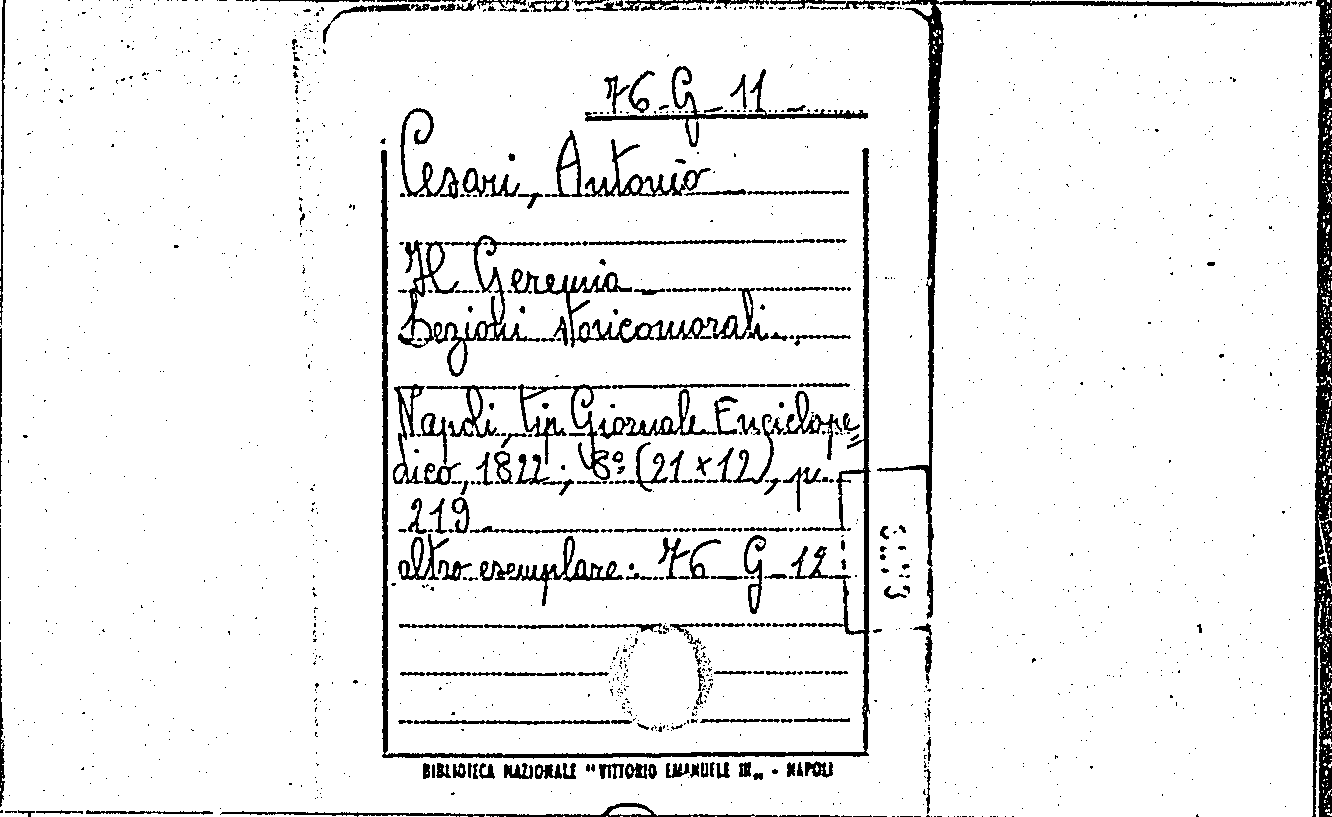 76 G 11
Cesari, Antonio
Il Geremia
Lezioni storicomorali.
Napoli, tip. Giornale Enciclope=
dico, 1822; 8º (21 x 12), p.
219
altro esemplare: 76 G 12
BIBLIOTECA NAZIONALE "VITTORIO EMANUELE III„ - NAPOLI